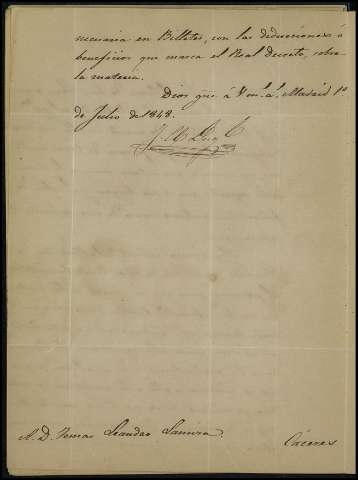 necesaria en Billetes, con las deducciones ó
beneficios que marca el Real decreto, sobre
la materia.
Dios gue. á V. m.s a.s Madrid 1º
de Julio de 1848.
A. D. Tomas Leandro
Cáceres